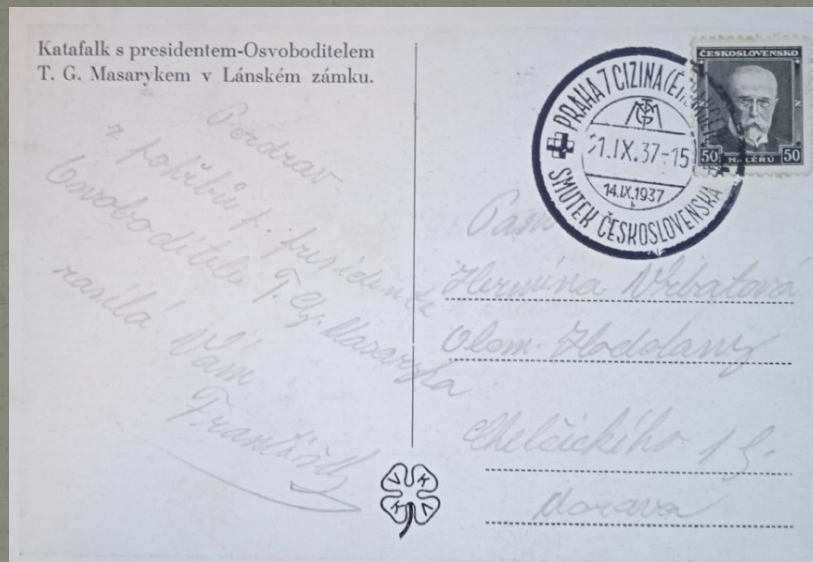 Katafalk s presidentem-Osvoboditelem
T. G. Masarykem v Lánském zámku.
Pozdrav
z pohřbu p. presidenta
Osvoboditele T. G. Masaryka
zasílá Vám
František
PRAHA 7 CIZINA
21.IX.37-15
14.IX.1937
SMUTEK ČESKOSLOVENSKA
ČESKOSLOVENSKO
50 HALÉŘŮ 50
Paní
Hermína Vrbatová
Olom. Hodolany
Chelčického
Morava
V K V K